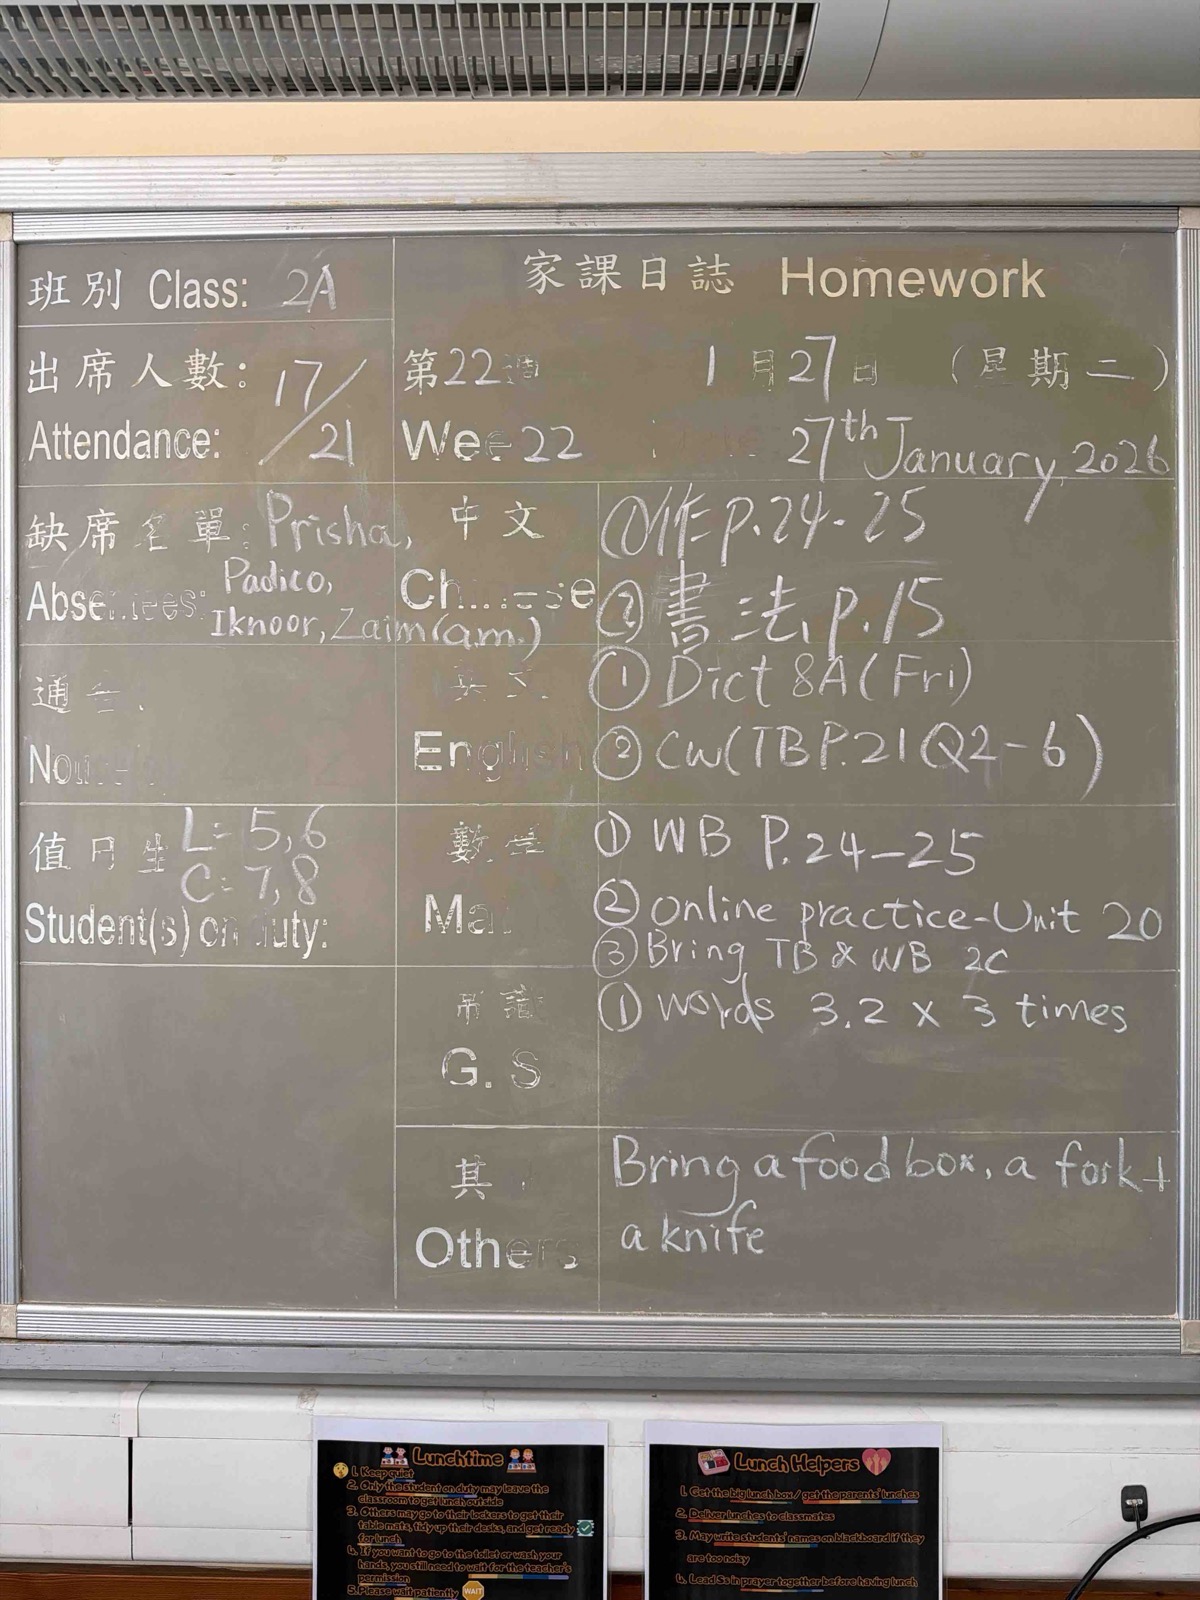 班別 Class: 2A
家課日誌 Homework
出席人數: 17/21
Attendance:
第22週 1月27日 (星期二)
Wee 22 27th January, 2026
缺席名單: Prisha,
Absentees: Padico,
Iknoor, Zaim(am.)
中文
Chinese
①作 p.24-25
②書法 p.15
通告
英文
English
①Dict 8A(Fri)
②CW(TB P.21 Q2-6)
值日生 L: 5,6
C: 7,8
Student(s) on duty:
數學
Mat
① WB P.24-25
② online practice-Unit 20
③ Bring TB & WB 2C
常識
G. S
① words 3.2 x 3 times
其
Others
Bring a food box, a fork +
a knife
Lunchtime
1. Keep quiet
2. Only the student on duty may leave the
classroom to get lunch outside
3. Others may go to their lockers to get their
table mats, tidy up their desks, and get ready
for lunch
4. If you want to go to the toilet or wash your
hands, you still need to wait for the teacher's
permission
5. Please wait patiently WAIT
Lunch Helpers
1. Get the big lunch box / get the parents' lunches
2. Deliver lunches to classmates
3. May write students' names on blackboard if they
are too noisy
4. Lead Ss in prayer together before having lunch